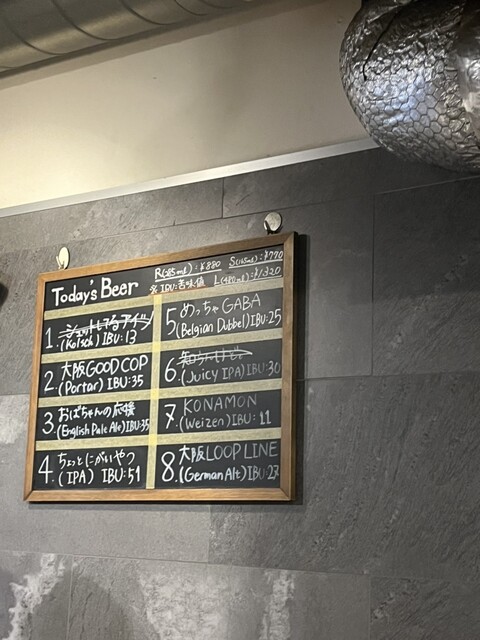 Today's Beer
R(285ml):¥880 S(165ml):¥770
※IBU:苦味値 L(480ml):¥1320
1.
(Kölsch) IBU:13
2. 大阪GOOD COP
(Porter) IBU:35
3. おばちゃんの応援
(English Pale Ale) IBU:35
4. ちょっとにがいやつ
(IPA) IBU:51
5. めっちゃGABA
(Belgian Dubbel) IBU:25
6. 知らんけど
(Juicy IPA) IBU:30
7. KONAMON
(Weizen) IBU:11
8. 大阪LOOP LINE
(German Alt) IBU:27